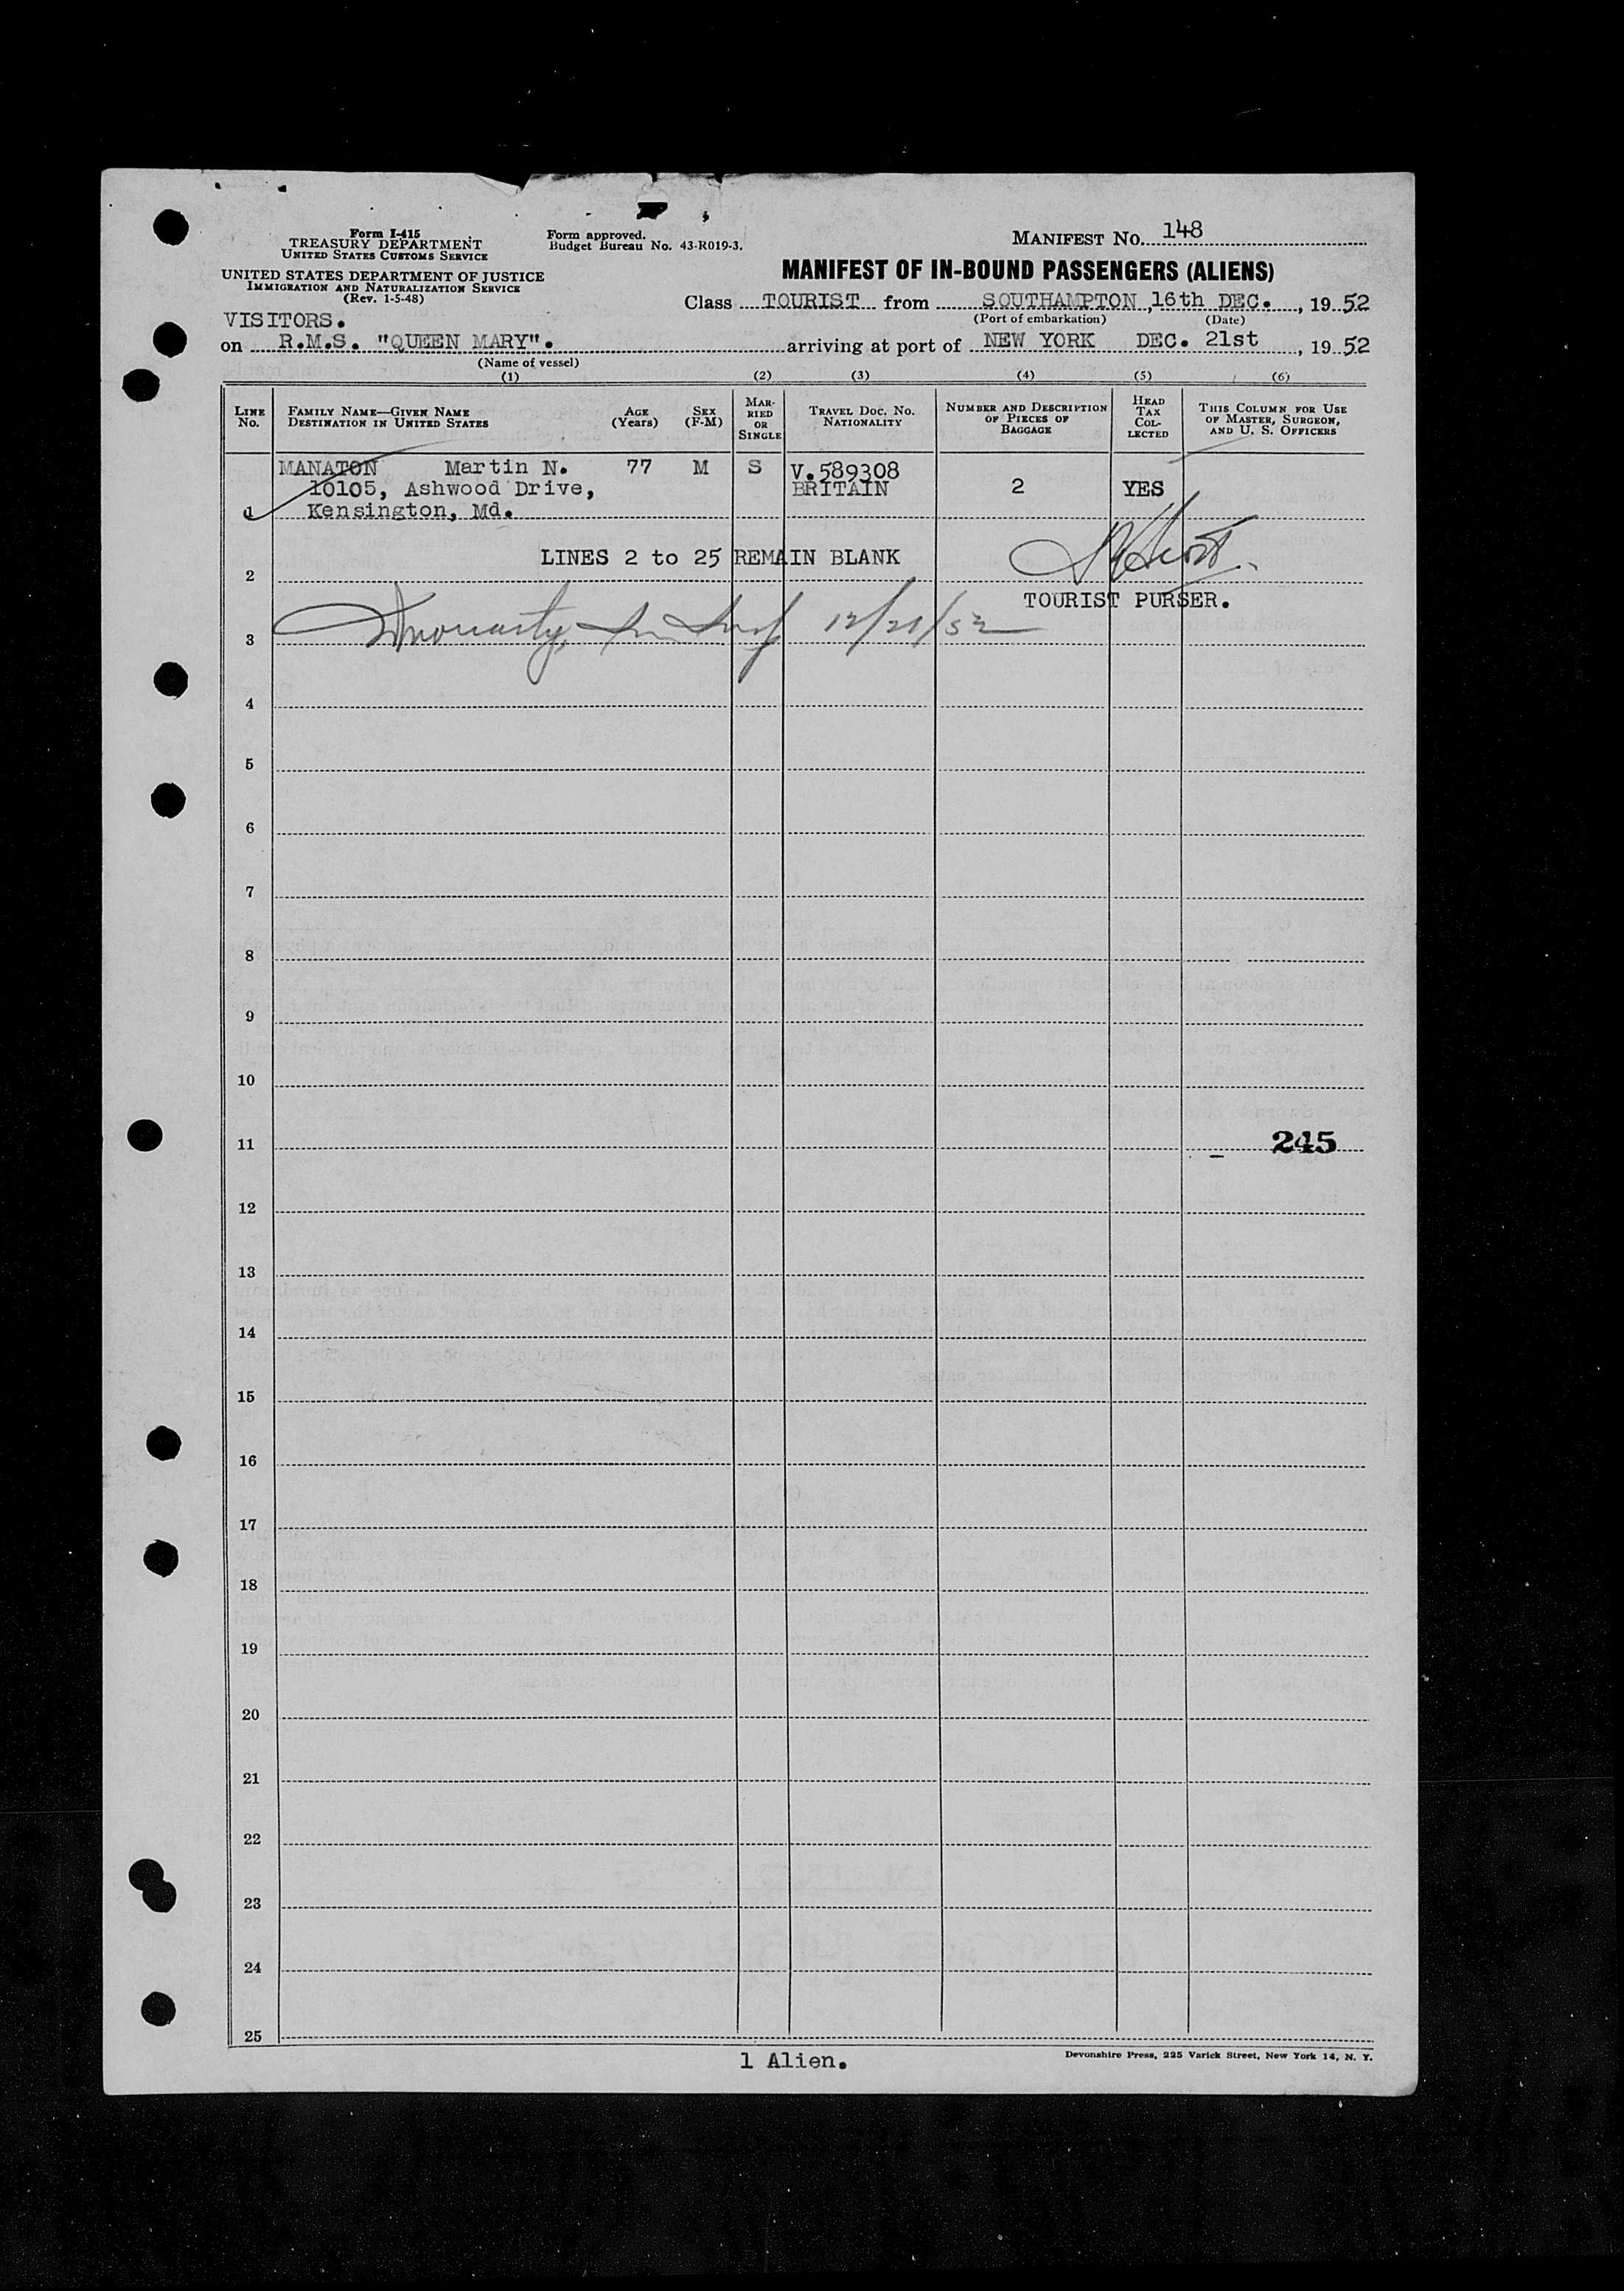 Form I-415
TREASURY DEPARTMENT
UNITED STATES CUSTOMS SERVICE
UNITED STATES DEPARTMENT OF JUSTICE
IMMIGRATION AND NATURALIZATION SERVICE
(Rev. 1-5-48)
Form approved.
Budget Bureau No. 43-R019-3.
MANIFEST NO. 148
MANIFEST OF IN-BOUND PASSENGERS (ALIENS)
Class TOURIST from SOUTHAMPTON, 16th DEC., 1952
(Port of embarkation) (Date)
VISITORS.
on R.M.S. "QUEEN MARY". arriving at port of NEW YORK DEC. 21st, 1952
(Name of vessel)
(1) (2) (3) (4) (5) (6)
LINE No. FAMILY NAME—GIVEN NAME DESTINATION IN UNITED STATES AGE (Years) SEX (F-M) MARRIED OR SINGLE TRAVEL DOC. NO. NATIONALITY NUMBER AND DESCRIPTION OF PIECES OF BAGGAGE HEAD TAX COLLECTED THIS COLUMN FOR USE OF MASTER, SURGEON, AND U. S. OFFICERS
MANATON Martin N. 77 M S V.589308
10105, Ashwood Drive, BRITAIN 2 YES
1 Kensington, Md.
LINES 2 to 25 REMAIN BLANK
2
TOURIST PURSER.
12/21/52
3
4
5
6
7
8
9
10
11 245
12
13
14
15
16
17
18
19
20
21
22
23
24
25
1 Alien.
Devonshire Press, 225 Varick Street, New York 14, N. Y.